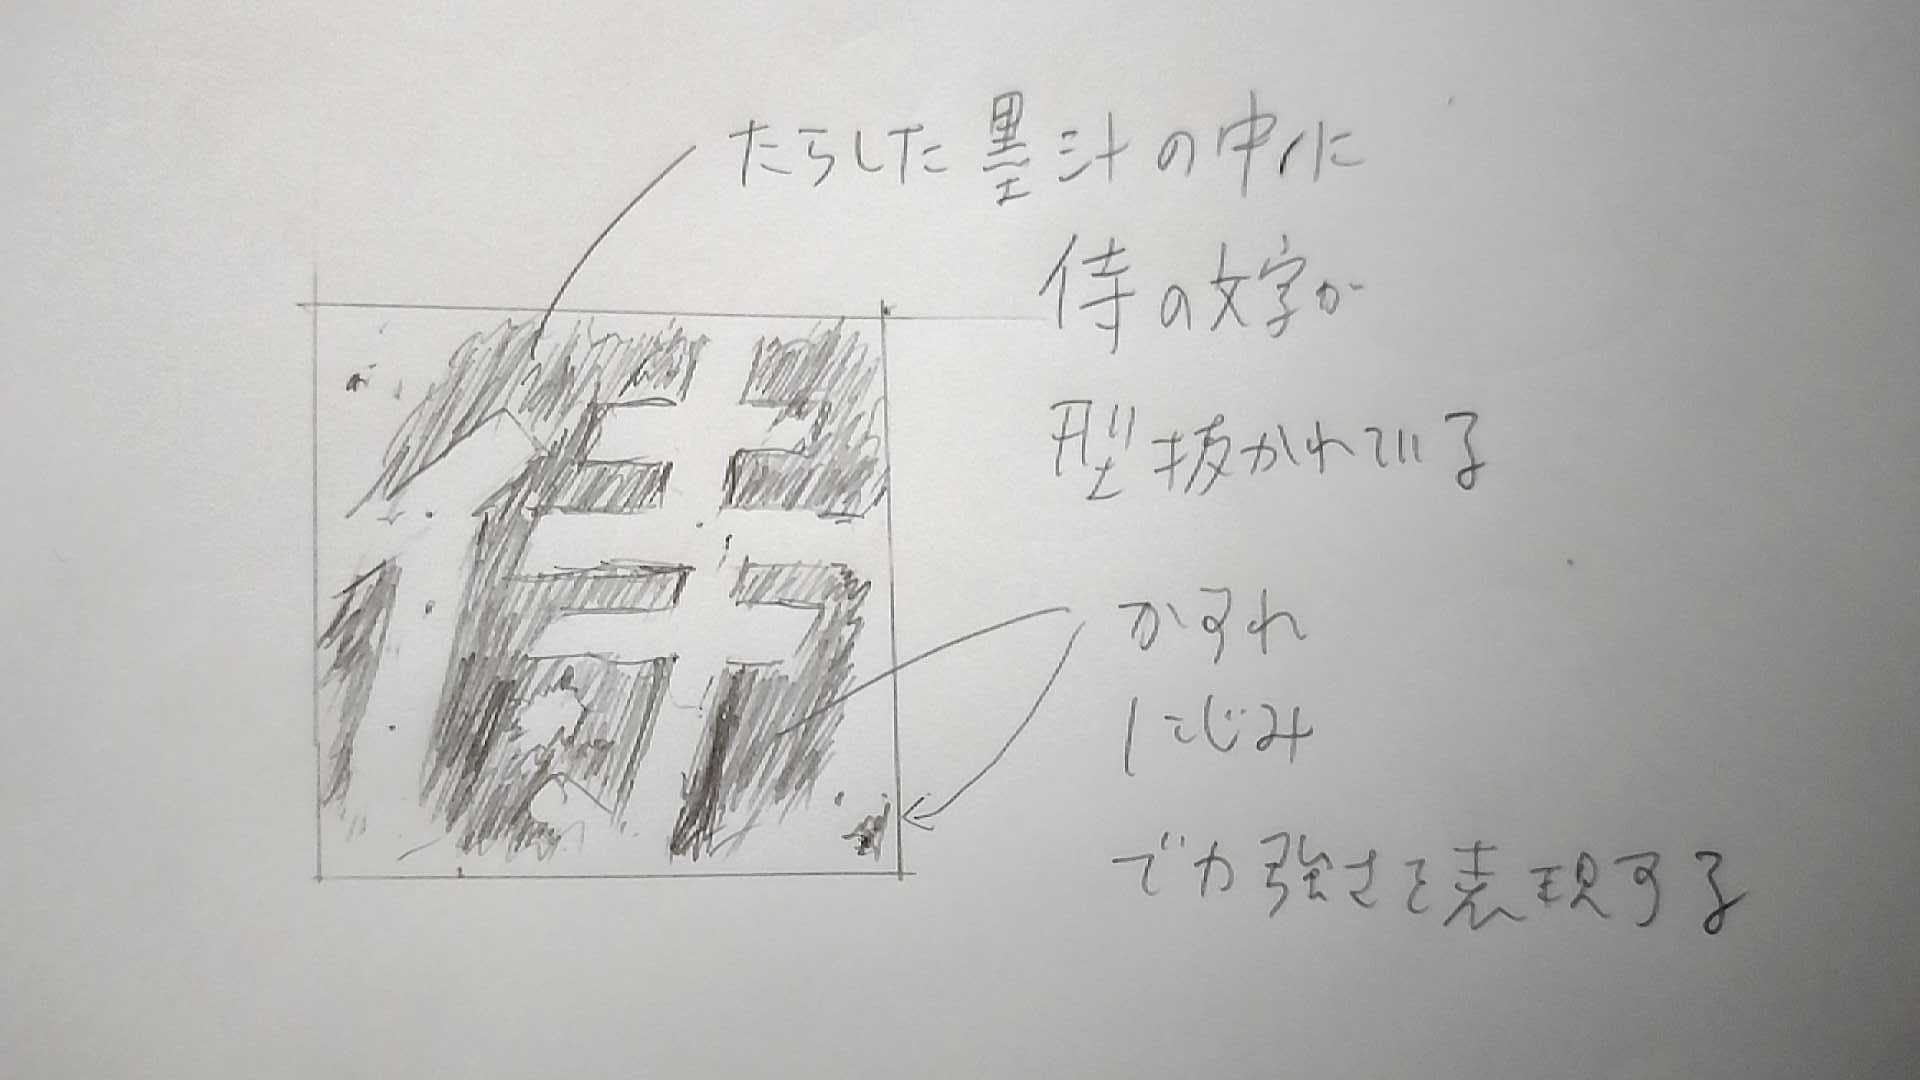 たらした墨汁の中に
侍の文字が
型抜かれている
侍
かすれ
にじみ
で力強さを表現する